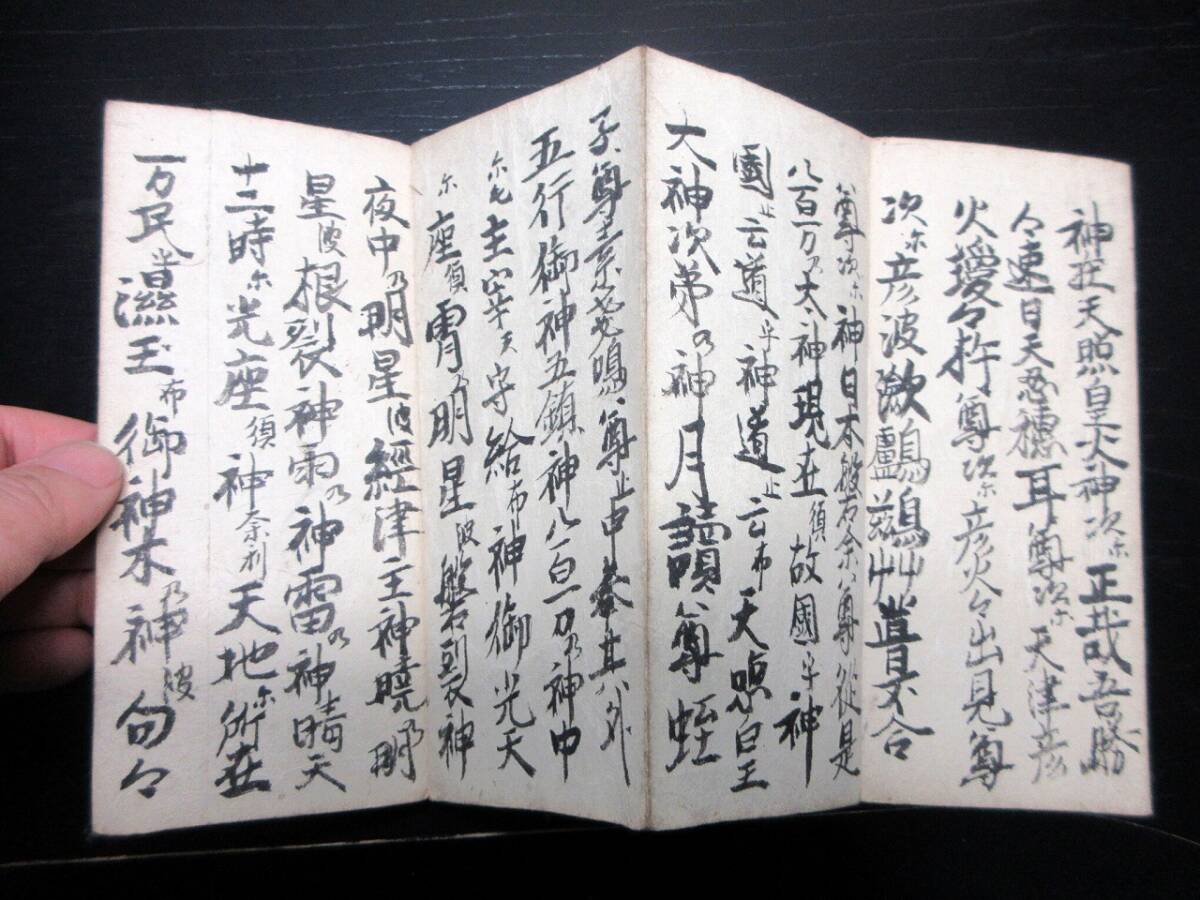 神在天照皇大神次尓正哉吾勝
々速日天忍穂耳尊次尓天津彦
火瓊々杵尊次尓彦火々出見尊
次尓彦波瀲鸕鶿草葺不合
尊次尓神日本磐余尊従是
八百万乃大神現在須故國乎神
國止云道乎神道止云布天照皇
大神次第乃神月讀尊蛭
子尊素戔嗚尊止申奉其外
五行御神五鎮神八百万乃神中
尓毛主宰天守給布神御光天
尓座須宵乃明星波磐裂神
夜中乃明星波經津主神暁乃明
星波根裂神雨乃神雷乃神晴天
十二時尓光座須神奈利天地尓所在
万民濕玉布御神木乃神波句々